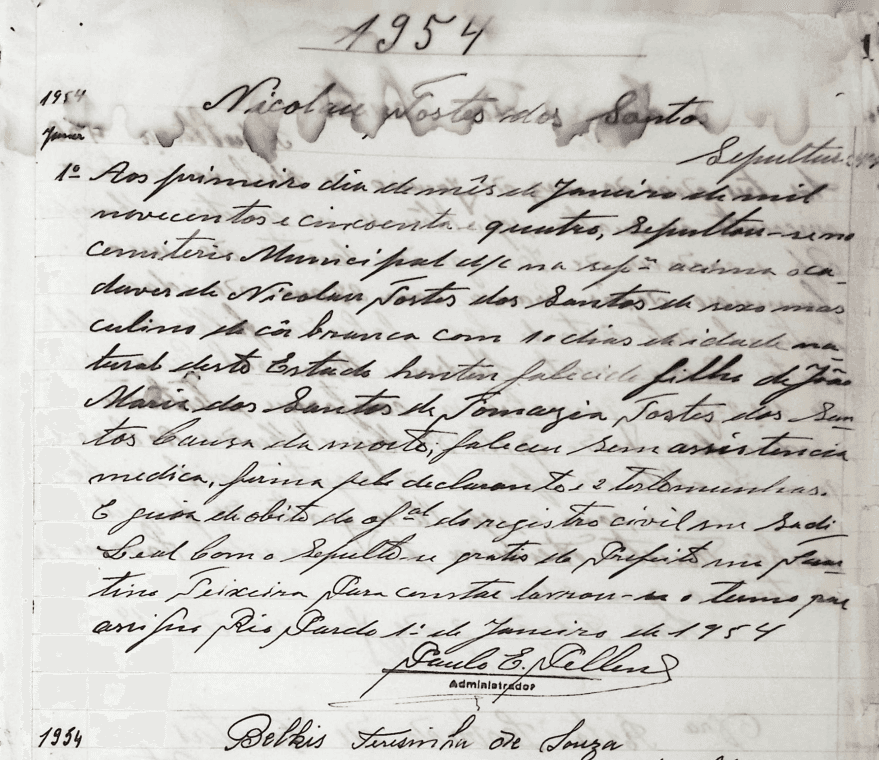 1954
1954
Nicolau Tostes dos Santos
Janr
Sepultur
1º Aos primeiro dia de mês de Janeiro de mil
novecentos e cincoenta e quatro, Sepultou-se no
Cemiterio Municipal d/c na sepª acima o ca-
daver de Nicolau Tostes dos Santos de sexo mas
culino de côr branca com 10 dias de idade na-
tural deste Estado hontem falecido filho de João
Maria dos Santos de Tomazia Tostes dos San-
tos Causa da morte, faleceu sem assistencia
medica, firma pelo declarante e 2 testemunhas.
E guia de obito do ofal do registro civil snr Sadi
Leal Com o Sepulto-se gratis do Prefeito snr
tino Teixeira Para constar lavrou-se o termo que
assigno Rio Pardo 1º de Janeiro de 1954
Paulo E.
Administrador
1954 Belkis Teresinha de Souza